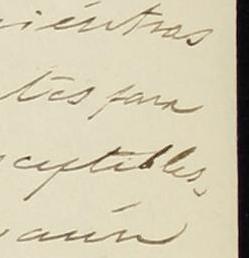 miéntras
tes para
sceptibles,
aún